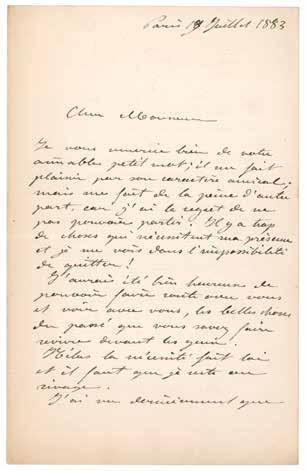 Paris 19 Juillet 1883
Cher Monsieur
Je vous remercie bien de votre
aimable petit mot; il me fait
plaisir par son caractère amical;
mais me fait de la peine d'autre
part, car j'ai le regret de ne
pas pouvoir partir. Il y a trop
de choses qui nécessitent ma présence
et je me vois dans l'impossibilité
de quitter!
J'aurais été bien heureux de
pouvoir faire route avec vous
et voir avec vous, les belles choses
du passé que vous savez faire
revivre devant les yeux.
Hélas la nécessité fait loi
et il faut que je reste au
rivage.
J'ai vu dernièrement que